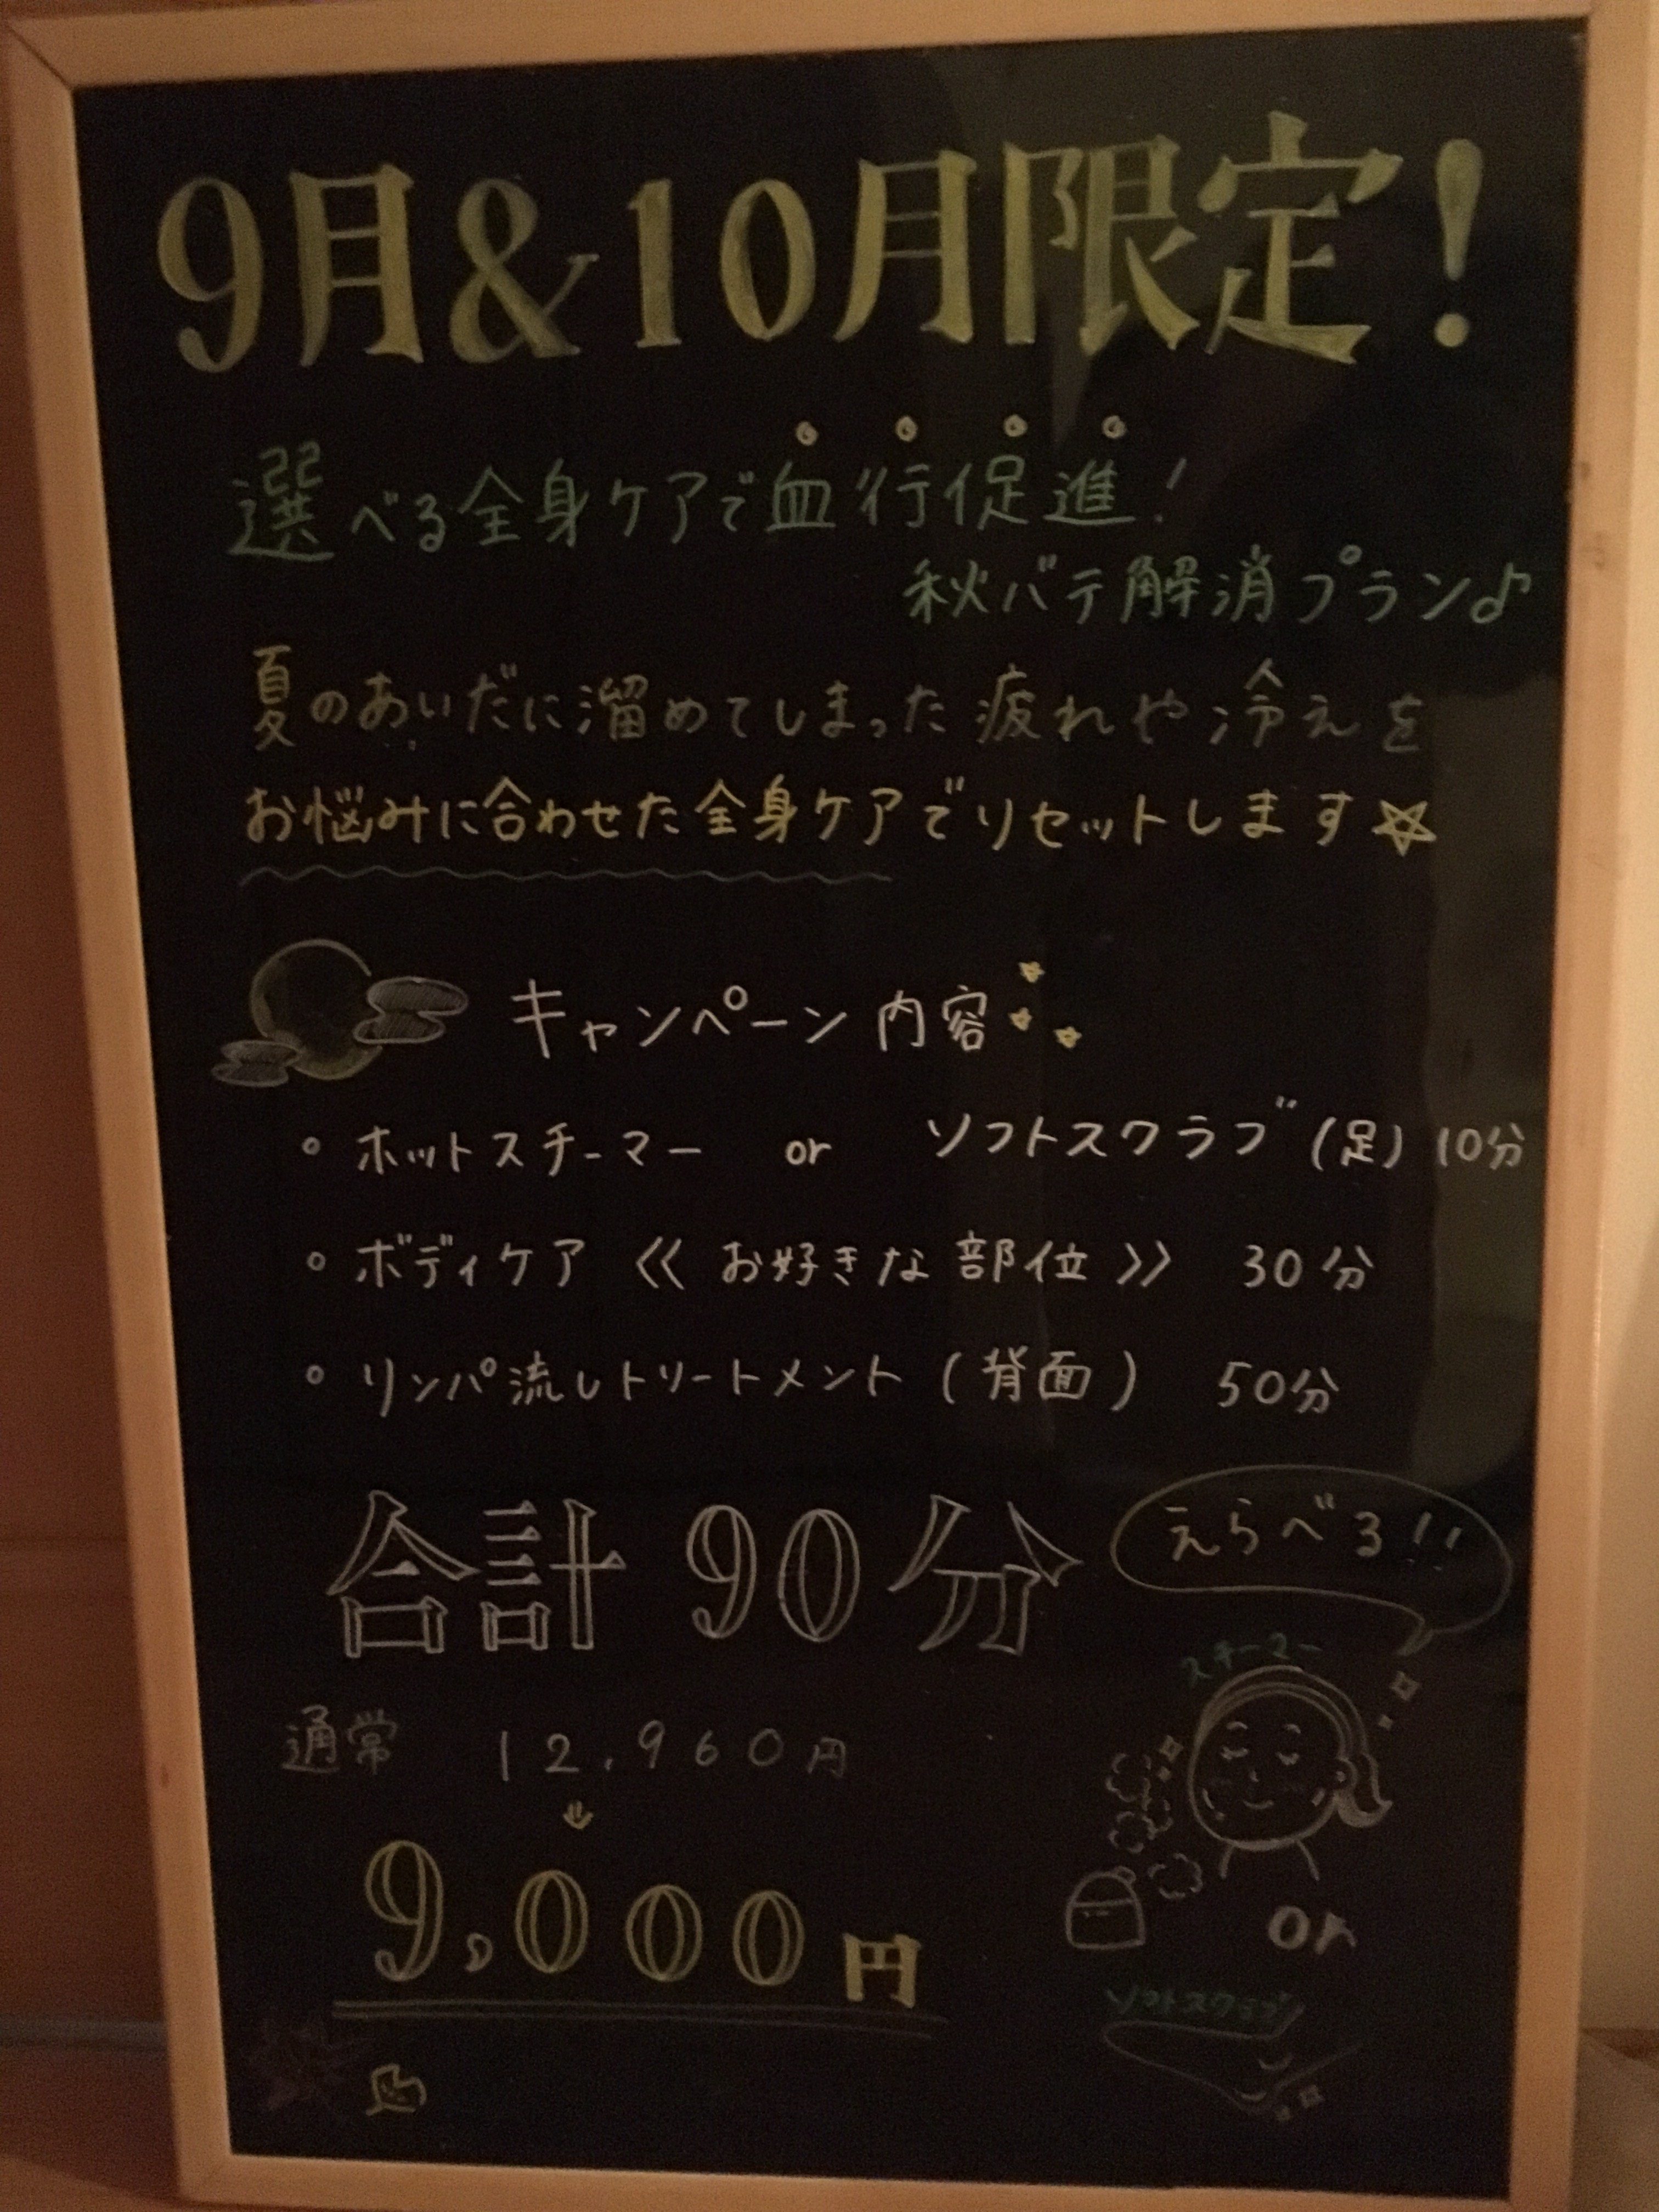 9月&10月限定!
選べる全身ケアで血行促進!
秋バテ解消プラン♪
夏のあいだに溜めてしまった疲れや冷えを
お悩みに合わせた全身ケアでリセットします☆
キャンペーン内容
・ホットスチーマー or ソフトスクラブ(足) 10分
・ボディケア 《お好きな部位》 30分
・リンパ流しトリートメント(背面) 50分
合計 90分
えらべる!!
スチーマー
通常 12,960円
↓
9,000円
or
ソフトスクラブ